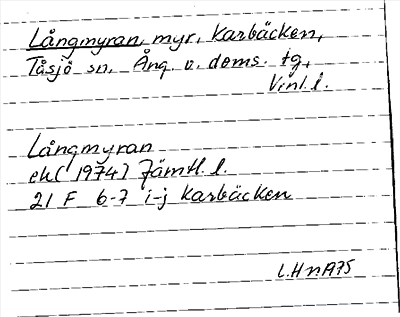 Långmyran, myr, Karbäcken,
Tåsjö sn, Ång. v. doms. tg,
Vnl. l.
Långmyran
ek (1974) Jämtl. l.
21 F 6-7 i-j Karbäcken
L.Hn A75